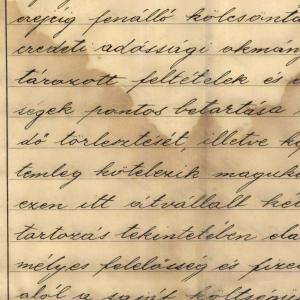 erejéig fenálló kölcsönta
eredeti adóssági okmán
tározott feltételek és
ségek pontos betartása
dő törlesztését, illetve
temleg kötelezik maguka
ezen itt átvállalt
tartozás tekintetében ela
mélyes felelősség és fize
alól a saját költségü